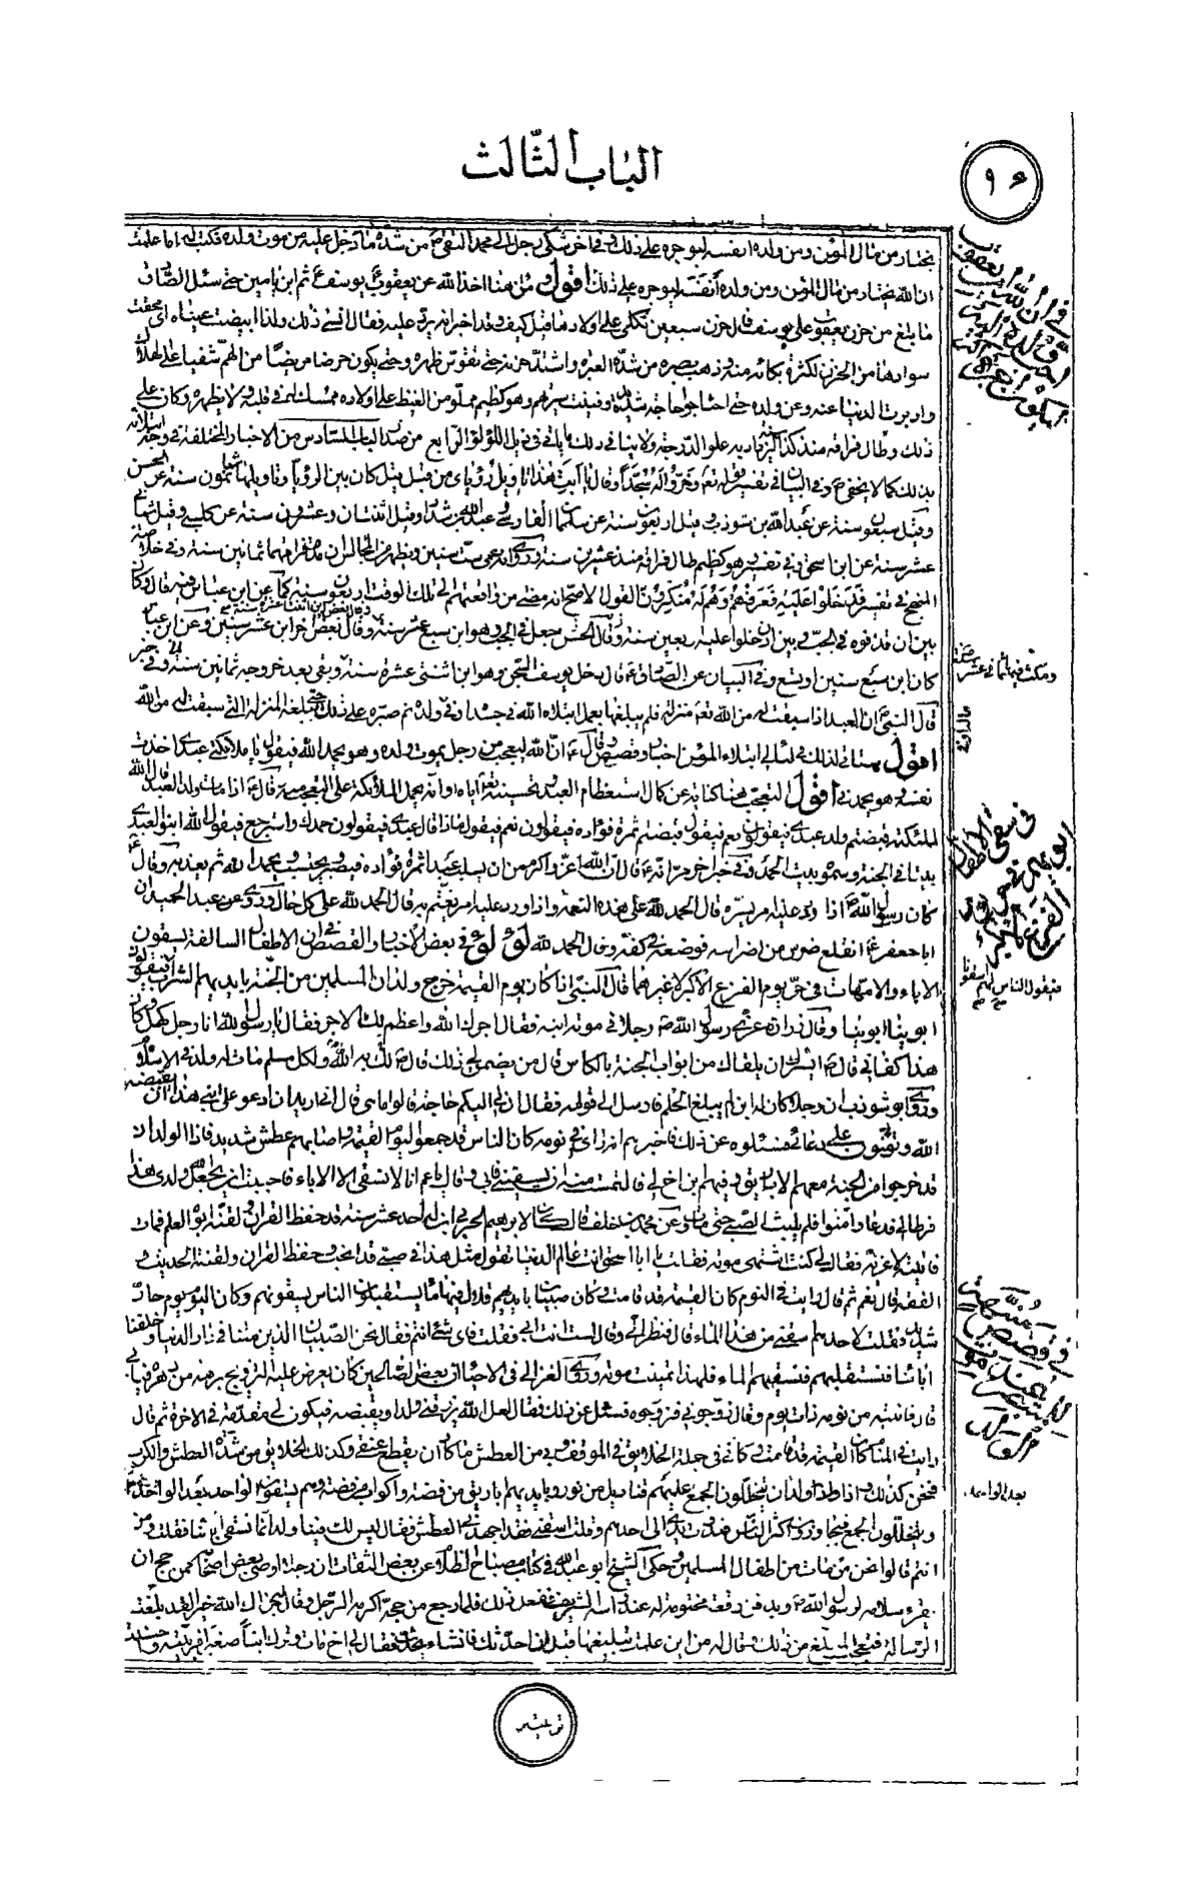 الباب الثالث
٩٦
يختار من مال المؤمن ومن ولده انفسه ليوجره على ذلك وفي اخر شكى رجل الى محمد التقي من شدة ما دخل عليه من موت ولده فكتب اليه اما علمت
ان الله يختار من مال المؤمن ومن ولده أنفسه ليوجره على ذلك اقول ومن هنا اخذ الله عن يعقوب يوسف ثم ابن يامين حتى سئل الصادق
ما بلغ من حزن يعقوب على يوسف قال حزن سبعين ثكلى على اولادها قيل كيف وقد اخبر انه يرد عليه فقال انسي ذلك ولذا ابيضت عيناه اي محقت
سوادهما من الحزن لكثرة بكائه منه وذهب بصره من شدة العبرة واشتد حزنه حتى تقوس ظهره وحتى يكون حرضا مريضا من الهم مشفيا على الهلاك
وادبرت الدنيا عنه وعن ولده حتى احتاجوا حاجة شديدة وفنيت ميرتهم وهو كظيم مملو من الغيظ على اولاده ممسك له في قلبه ولا يظهره وكان على
ذلك وطال فراقه منذ كذا علو الدرجة ولا ينافي ذلك ما ياتي في ذيل اللؤلؤ الرابع من صدر الباب السادس من الاخبار المختلفة في وجه ابتلائه
بذلك كما لا يخفى وفي البيان في تفسير قوله تعم وخروا له سجدا وقال يا ابت هذا تاويل رؤياي من قبل قيل كان بين الرؤيا وتاويلها ثمانون سنة عن الحسن
وقيل سبعون سنة عن عبد الله بن شوذب وقيل اربعون سنة عن سلمان الفارسي وعبد الله بن شداد وقيل اثنتان وعشرون سنة عن كلبي وقيل ثماني
عشر سنة عن ابن اسحق وفي تفسير هو كظيم طال فراقه منذ عشرين سنة
المنهج في تفسير فدخلوا عليه فعرفهم وهم له منكرون القول الاصح انه مضى من واقعتهم الى تلك الوقت اربعون سنة كما عن ابن عباس فيه قال وكان
بين ان قذفوه في الجب وبين ان دخلوا عليه اربعين سنة وقال الحسن جعل في الجب وهو ابن سبع عشر سنة وقال بعض اخر ابن عشر سنين وعن ابن عباس
كان ابن سبع سنين او تسع وفي البيان عن الصادق قال دخل يوسف السجن وهو ابن اثنتي عشرة سنة وبقي بعد خروجه ثمانين سنة وفي خبر
قال النبي ان العبد اذا سبقت له من الله تعم منزلة فلم يبلغها بعمل ابتلاه الله في جسده او في ولده ثم صبره على ذلك حتى يبلغه المنزلة التي سبقت له من الله
اقول قال ان الله ليعجب من رجل يموت ولده وهو يحمد الله فيقول يا ملائكتي عبدي اخذت
نفسه وهو يحمدني اقول التعجب هنا كناية عن كمال استعظام العبد اذا مات ولد العبد قال الله
للملئكة قبضتم ولد عبدي فيقولون نعم فيقول قبضتم ثمرة فؤاده فيقولون نعم فيقول ماذا قال عبدي فيقولون حمدك واسترجع فيقول الله ابنوا لعبدي
بيتا في الجنة وسموه بيت الحمد وفي خبر اخر قال ان الله اعز واكرم من ان يسلب عبدا ثمرة فؤاده فيصبر ويحتسب ويحمد الله ثم يعذبه وقال
كان رسول الله اذا ورد عليه امر يسره قال الحمد لله على هذه النعمة واذا ورد عليه امر يغتم به قال الحمد لله على كل حال وروي عن عبد الحميد ان
ابا جعفر انقلع ضرس من اضراسه فوضعه في كفه وقال الحمد لله لؤلؤ في بعض الاخبار والقصص في ان الاطفال السالفة يسقون
الاباء والامهات في حر يوم الفزع الاكبر لا غيرهما قال النبي اذا كان يوم القيمة خرج ولدان المسلمين من الجنة بايديهم الشراب
ابوينا ابوينا وقال زرارة عزى رسول الله رجلا في موت ابنه فقال اجرك الله واعظم لك الاجر فقال يا رسول الله انا رجل
هذا كفاني قال ان يلقاك من ابواب الجنة بالكاس قال من يضمن لي ذلك قال لك به الله ولكل مسلم مات له ولد في الاسلام
وروى ابو شوذب ان رجلا كان له ابن لم يبلغ الحلم فارسل الى قومه فقال ان لي اليكم حاجة قالوا ما هي قال اني اريد ان ادعو على ابني هذا ان يقبضه
الله وتؤمنون على دعائي فسئلوه عن ذلك فاخبرهم انه راى في نومه كان الناس قد جمعوا ليوم القيمة واصابهم عطش شديد فاذا الولدان
قد خرجوا من الجنة معهم الاباريق وفيهم ابن اخ لي فالتمست منه ان يسقيني فابى وقال يا عم انا لا نسقي الا الاباء فاحببت ان يجعل الله ولدي هذا
فرطا لي فدعا وامنوا فلم يلبث الصبي حتى مات وعن محمد بن خلف قال كان لابراهيم الحربي ابن له احد عشر سنة قد حفظ القران ولقنه ابوه العلم فمات
فاتيته لاعزيه فقال لي كنت اشتهي موته فقلت يا ابا اسحق انت عالم الدنيا تقول مثل هذا في صبي قد انجب وحفظ القران ولقنته الحديث و
الفقه قال نعم ثم قال رايت في النوم كان القيمة قد قامت وكان صبيانا بايديهم قلال فيها ماء يستقبلون الناس يسقونهم وكان اليوم يوم حار
شديد فقلت لاحدهم اسقني من هذا الماء قال فنظر الي وقال لست انت ابي فقلت فاي شيء انتم فقال نحن الصبيان الذين متنا في دار الدنيا وخلفنا
اباءنا فنستقبلهم فنسقيهم الماء فلهذا تمنيت موته وروى الغزالي في الاحياء ان بعض الصالحين كان يعرض عليه التزويج برهة من دهره فيابى
قال فانتبه من نومه ذات يوم وقال زوجوني فزوجوه فسئل عن ذلك فقال لعل الله يرزقني ولدا ويقبضه فيكون لي مقدمة في الاخرة ثم قال
رايت في المنام كان القيمة قد قامت وكاني في جملة الخلايق في الموقف وبي من العطش ما كاد ان يقطع عنقي وكذلك الخلايق من شدة العطش والكرب
فنحن كذلك اذا ولدان يتخللون الجمع عليهم قناديل من نور وبايديهم اباريق من فضة واكواب من فضة وهم يسقون الواحد بعد الواحد
ويتخللون الجمع فيتجاوزون اكثر الناس فمددت يدي الى احدهم وقلت اسقني فقد اجهدني العطش فقال ليس لك فينا ولد انما نسقي اباءنا فقلت ومن
انتم قالوا نحن من مات من اطفال المسلمين وحكى الشيخ ابو عبد الله في كتاب مصباح الظلام عن بعض الثقات ان رجلا اوصى بعض اصحابه ممن حج ان
يقرء سلامه لرسول الله ويدفن رقعة مختومة له عند راسه الشريف ففعل ذلك فلما رجع من حجه اكرمه الرجل وقال جزاك الله خيرا لقد بلغت
الرسالة فتعجب المبلغ من ذلك وقال له من اين علمت تبليغها قبل ان احدثك فانشاء يحدثه فقال لي اخ مات وترك ابنا صغيرا فربيته واحسنت
تربيته
في ان الله
في سقي الاطفال
ابويهم
فيقول الناس لهم اسقونا
بعد الواحد